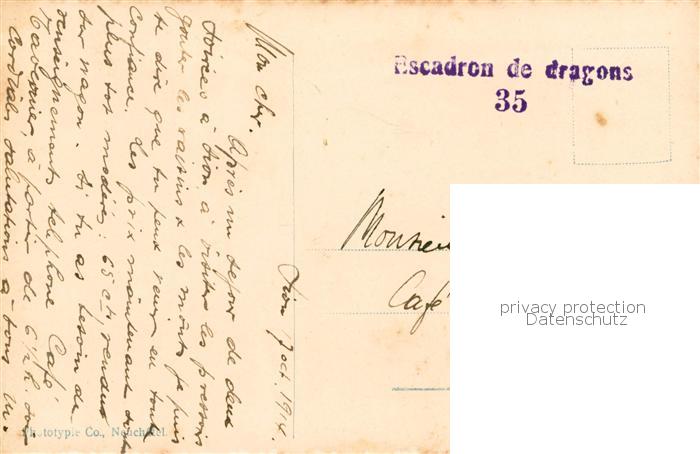 Escadron de dragons
35
Sion 7 oct. 1914.
Mon cher.
Après un séjour de deux
à Sion à visiter les pressoirs
goûter les raisins & les moûts je puis
te dire que tu peux venir en toute
confiance. Les prix maintenant
plus tot modérés: 65 cts, rendus
sur wagon. Si tu as besoin de
renseignements telephone Café
Tavernier, à partir de 6 1/2 h
Cordiales salutations à tous
Monsieur
Café
privacy protection
Datenschutz
Phototypie Co., Neuchâtel.